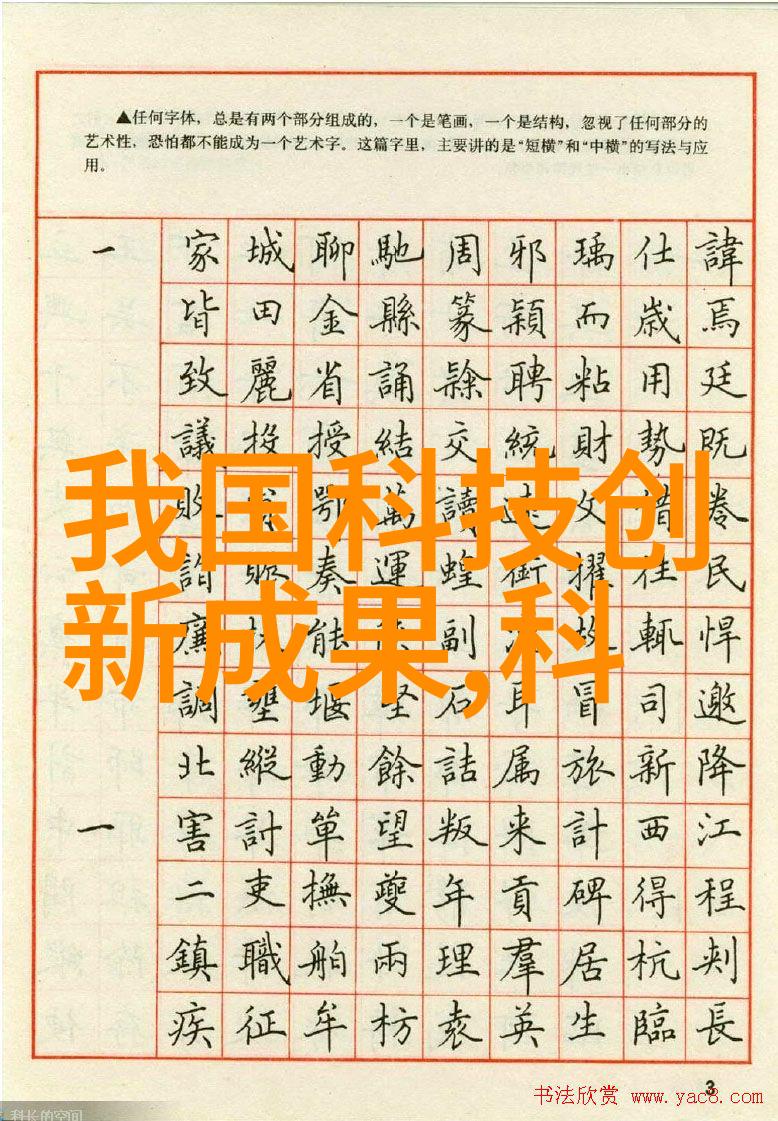 ▲任何字体，总是有两个部分组成的，一个是笔画，一个是结构，忽视了任何部分的
艺术性，恐怕都不能成为一个艺术字。这篇字里，主要讲的是“短横”和“中横”的写法与应
用。
一 家 城 聊 馳 周 邪 瑀 仕 諱
皆 田 金 縣 篆 穎 而 歲 焉
致 麗 省 誦 聘 粘 用 廷
議 投 授 結 交 統 財 勢 既
敗 鄂 萬 讀 文 惜
詣 奏 運 蝗 衝 擢 往 民
廉 能 副 故 輒 悍
調 壅 堰 坚 石 耳 冒 司 邀
北 縱 動 餘 詰 属 旅 新 降
一 害 討 單 望 叛 来 計 西 江
二 吏 撫 夔 年 貢 碑 得 程
鎮 職 舶 兩 理 羣 居 杭 刺
疾 征 牟 枋 袁 英 生 臨 長
我国科技创
新成果,科
3
书法欣赏 www.yac8.com
科长的空间